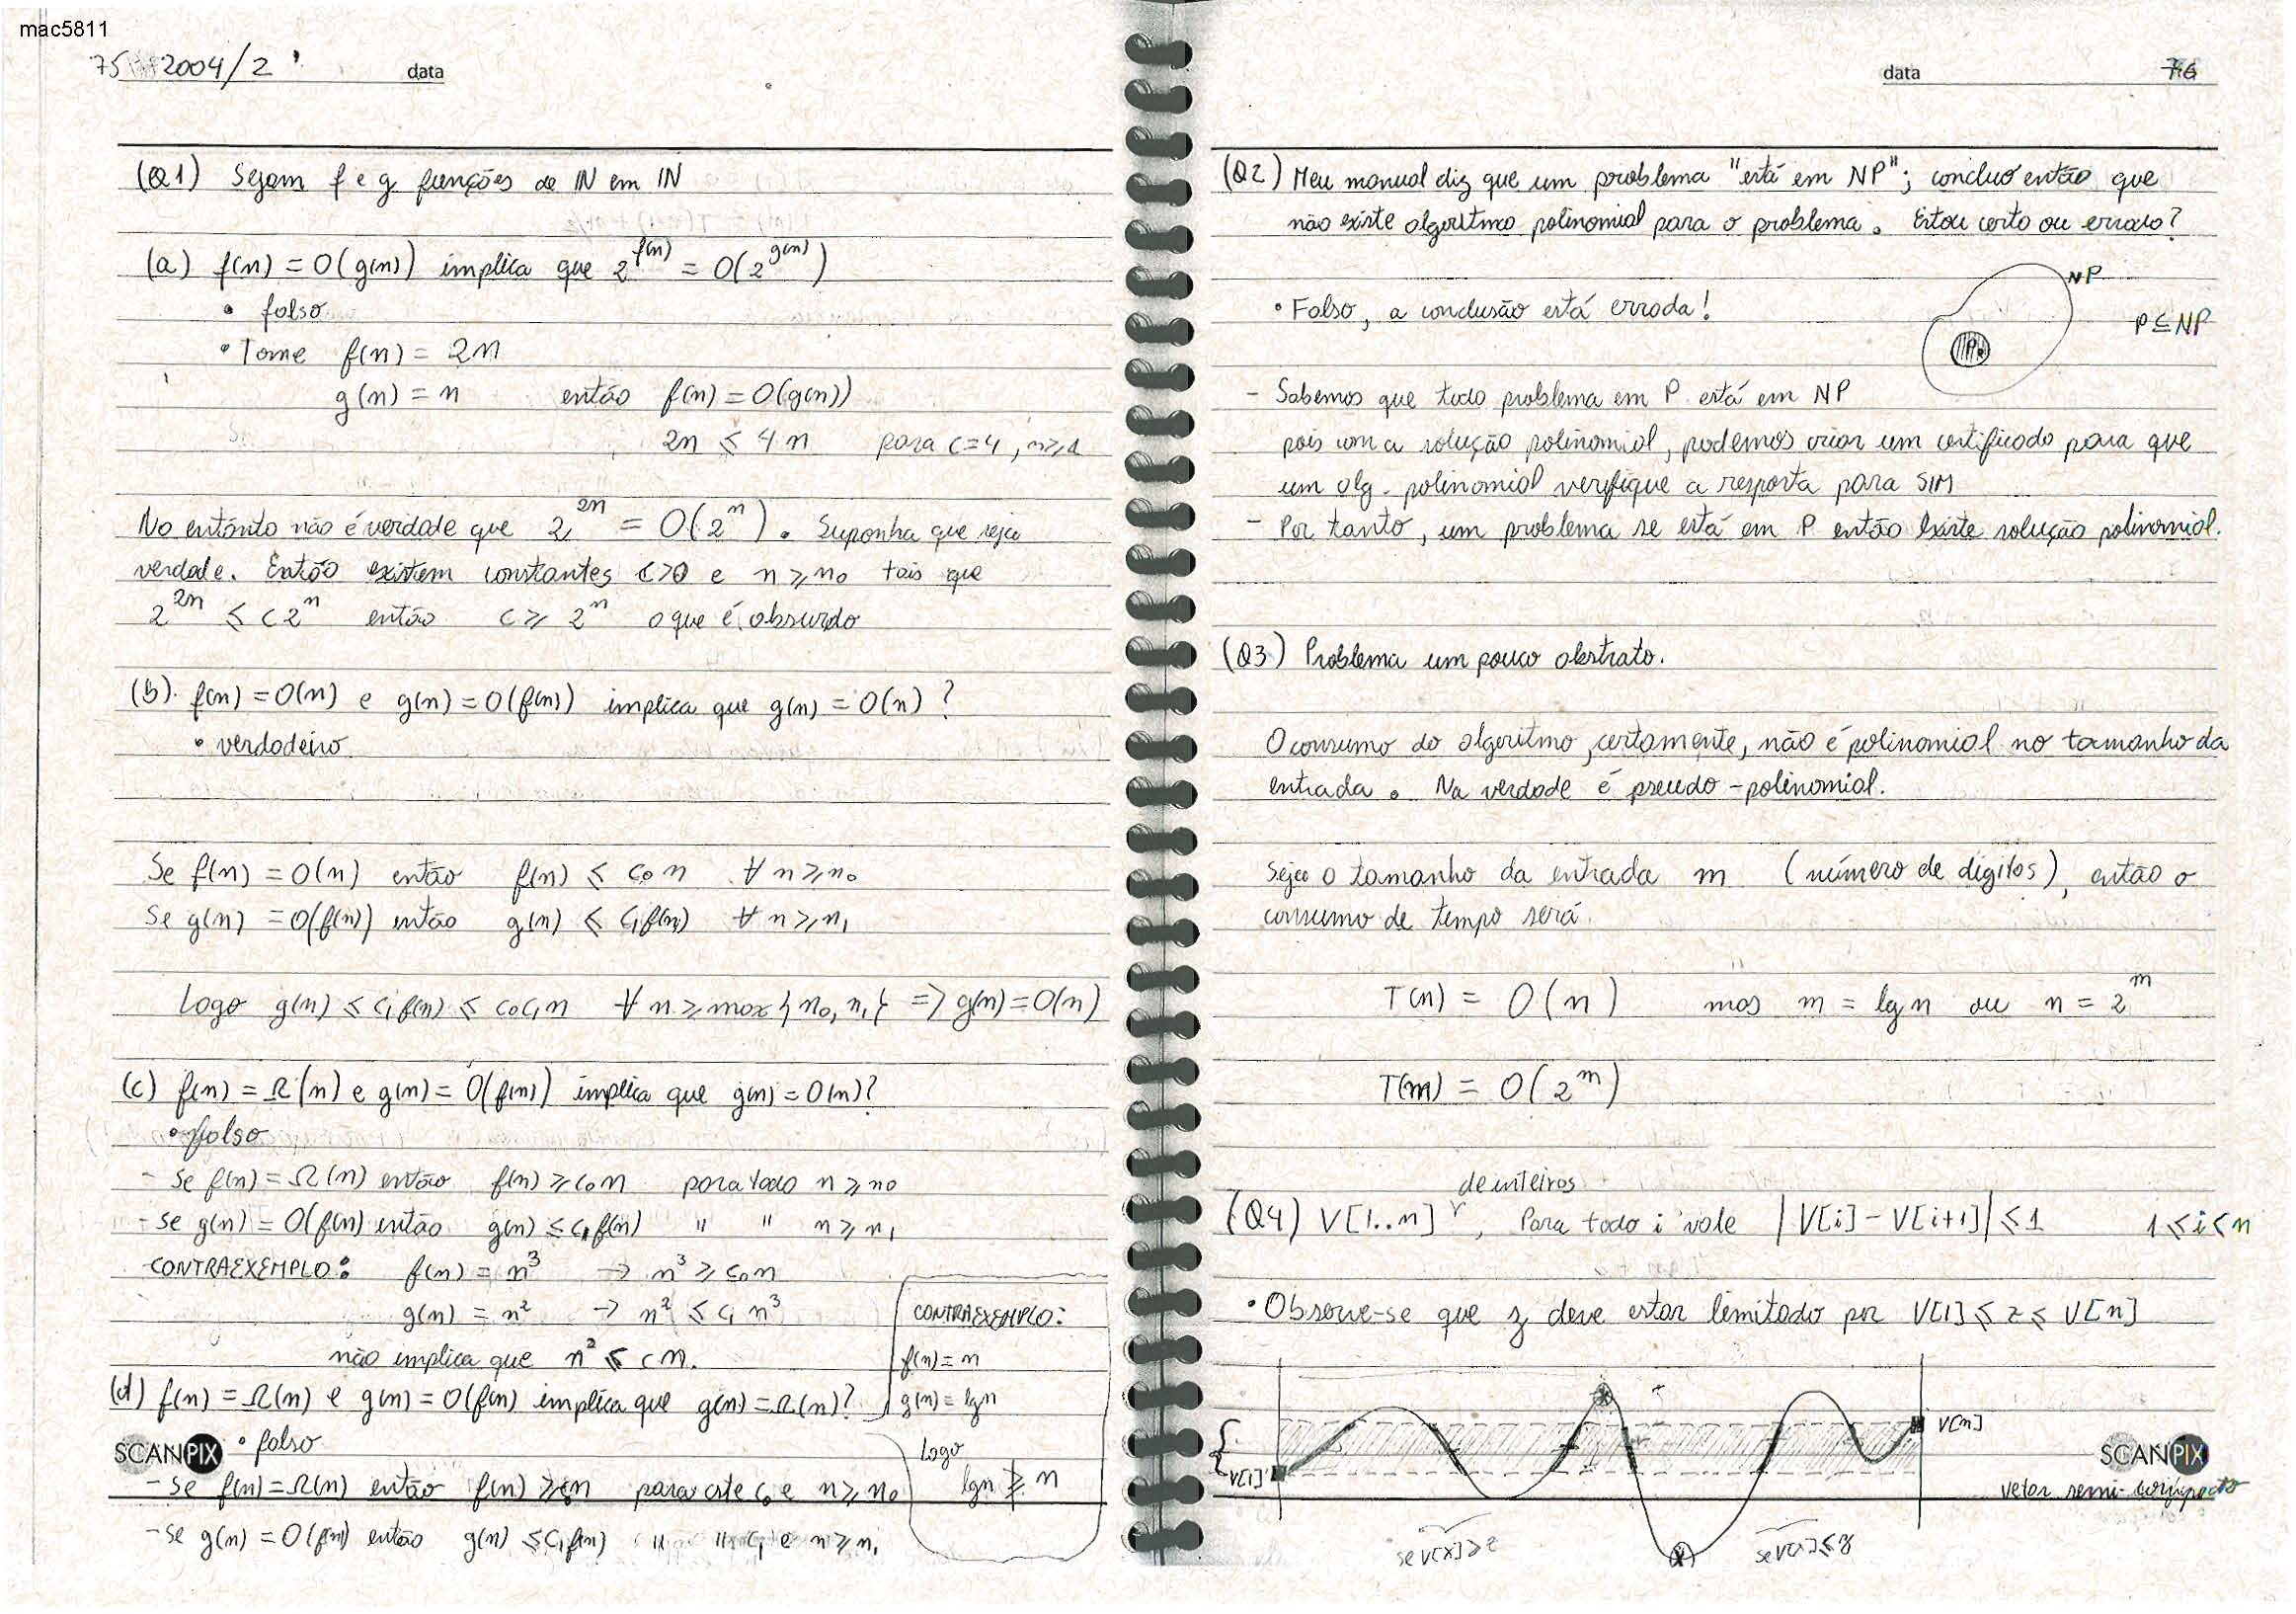 mac5811
75 2004/2
data
(Q1) Sejam f e g funções de IN em IN
(a) f(n) = O(g(n)) implica que 2^f(n) = O(2^g(n))
• falso
• Tome f(n) = 2n
g(n) = n então f(n) = O(g(n))
2n ≤ 4n para c=4, n≥1
No entanto não é verdade que 2^2n = O(2^n). Suponha que seja
verdade. Então existem constantes c>0 e n≥n₀ tais que
2^2n ≤ c2^n então c ≥ 2^n o que é absurdo
(b). f(n) = O(n) e g(n) = O(f(n)) implica que g(n) = O(n)?
• verdadeiro
Se f(n) = O(n) então f(n) ≤ c₀n ∀ n≥n₀
Se g(n) = O(f(n)) então g(n) ≤ c₁f(n) ∀ n≥n₁
Logo g(n) ≤ c₁f(n) ≤ c₀c₁n ∀ n≥max{n₀, n₁} => g(n) = O(n)
(c) f(n) = Ω(n) e g(n) = O(f(n)) implica que g(n) = O(n)?
• falso
- Se f(n) = Ω(n) então f(n) ≥ c₀n para todo n≥n₀
- se g(n) = O(f(n)) então g(n) ≤ c₁f(n) " " n≥n₁
CONTRAEXEMPLO: f(n) = n³ → n³ ≥ c₀n
g(n) = n² → n² ≤ c₁n³
não implica que n² ≤ cn.
(d) f(n) = Ω(n) e g(n) = O(f(n)) implica que g(n) = Ω(n)?
SCANPIX • falso
- Se f(n) = Ω(n) então f(n) ≥ c₀n para cte c₀ e n≥n₀
- se g(n) = O(f(n)) então g(n) ≤ c₁f(n) " " c₁ e n≥n₁
CONTRAEXEMPLO:
f(n) = n
g(n) = lgn
Logo
lgn ≱ n
data 76
(Q2) Meu manual diz que um problema "está em NP"; concluo então que
não existe algoritmo polinomial para o problema. Estou certo ou errado?
NP
• Falso, a conclusão está errada!
P ⊆ NP
P
- Sabemos que todo problema em P está em NP
pois com a solução polinomial, podemos criar um certificado para que
um alg. polinomial verifique a resposta para SIM
- Por tanto, um problema se está em P então existe solução polinomial.
(Q3) Problema um pouco abstrato.
O consumo do algoritmo, certamente, não é polinomial no tamanho da
entrada. Na verdade é pseudo-polinomial.
Seja o tamanho da entrada m (número de dígitos), então o
consumo de tempo será.
T(n) = O(n) mas m = lg n ou n = 2^m
T(m) = O(2^m)
de inteiros
(Q4) V[1..n], Para todo i vale |V[i] - V[i+1]| ≤ 1 1≤i<n
• Observe-se que z deve estar limitado por V[1] ≤ z ≤ V[n]
V[n]
V[1]
SCANPIX
vetor semi-compacto
se V[x] ≥ z
se V[x] ≤ z